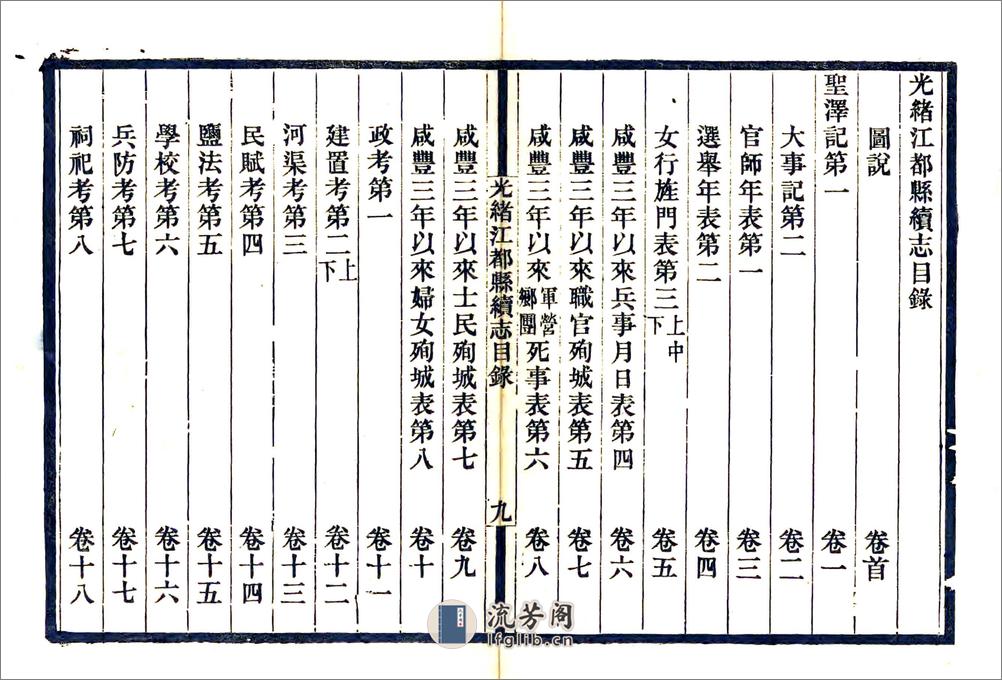 光緒江都縣續志目錄
圖說 卷首
聖澤記第一 卷一
大事記第二 卷二
官師年表第一 卷三
選舉年表第二 卷四
女行旌門表第三上中下 卷五
咸豐三年以來兵事月日表第四 卷六
咸豐三年以來職官殉城表第五 卷七
咸豐三年以來軍營鄉團死事表第六 卷八
光緒江都縣續志目錄 九
咸豐三年以來士民殉城表第七 卷九
咸豐三年以來婦女殉城表第八 卷十
政考第一 卷十一
建置考第二上下 卷十二
河渠考第三 卷十三
民賦考第四 卷十四
鹽法考第五 卷十五
學校考第六 卷十六
兵防考第七 卷十七
祠祀考第八 卷十八
流芳阁
lfglib.cn